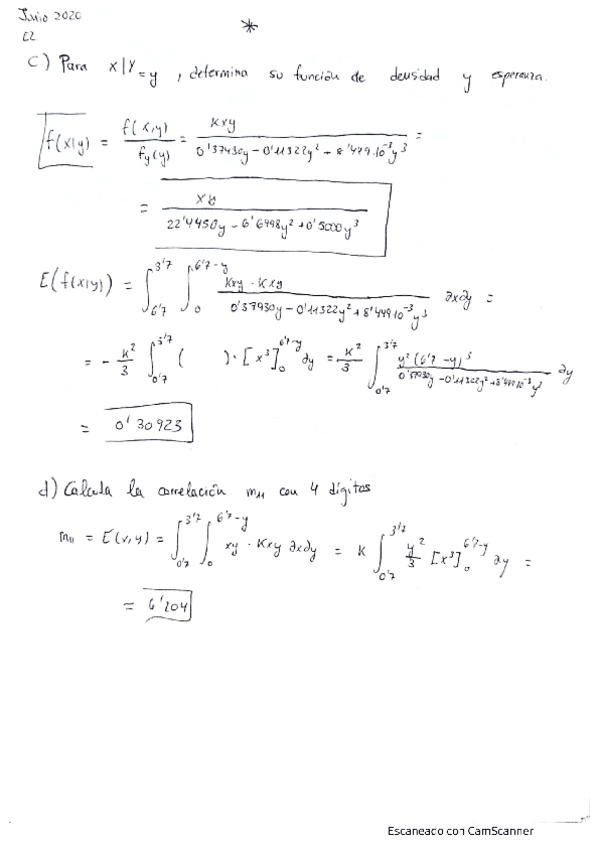 Junio 2020
E2
*
c) Para X|Y=y , determina su función de densidad y esperanza.
f(x|y) = f(x,y) / fy(y) = Kxy / 0'37930y - 0'11322y² + 8'449·10⁻³y³ =
= xy / 22'4450y - 6'6998y² + 0'5000y³
E(f(x|y)) = ∫_{6'7}^{3'7} ∫_0^{6'7-y} Kxy · Kxy / 0'37930y - 0'11322y² + 8'449·10⁻³y³ ∂x∂y =
= - K²/3 ∫_{0'7}^{3'7} ( ) · [x³]_0^{6'7-y} dy = K²/3 ∫_{0'7}^{3'7} y²(6'7-y)³ / 0'37930y - 0'11322y² + 8'449·10⁻³y³ ∂y
= 0'30923
d) Calcula la correlación m₁₁ con 4 dígitos
m₁₁ = E(x,y) = ∫_{0'7}^{3'7} ∫_0^{6'7-y} xy · Kxy ∂x∂y = K ∫_{0'7}^{3'7} y²/3 [x³]_0^{6'7-y} ∂y =
= 6'204
Escaneado con CamScanner